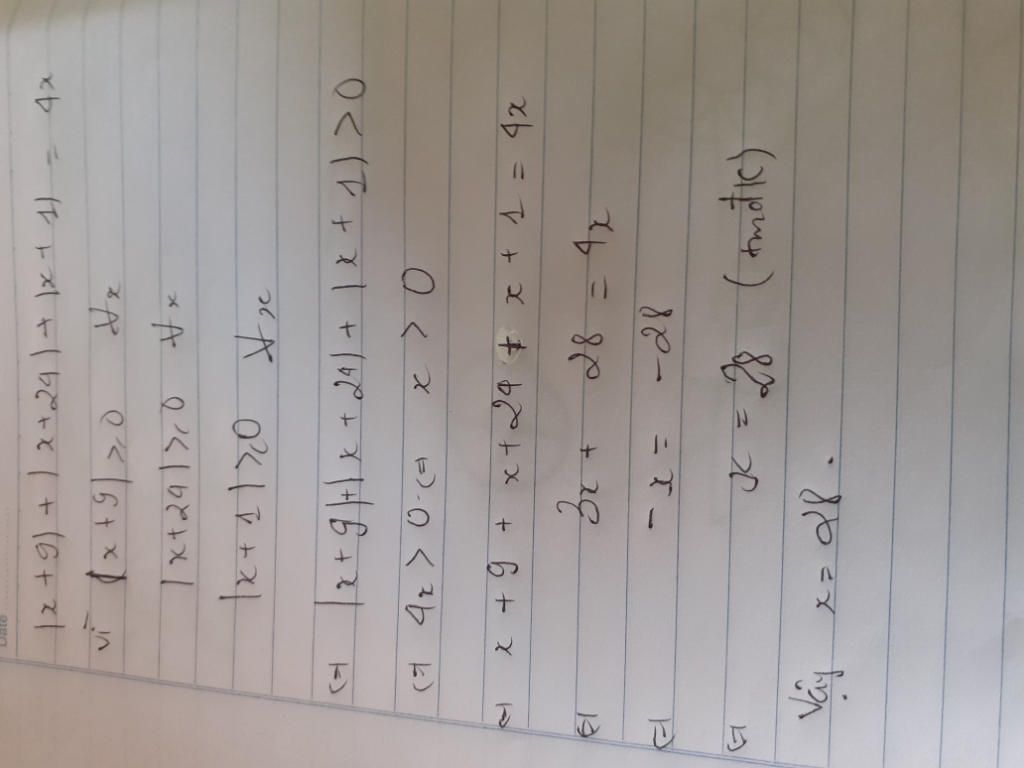 Date
|x + 9| + |x + 24| + |x + 1| = 4x
vì |x + 9| ≥ 0 ∀x
|x + 24| ≥ 0 ∀x
|x + 1| ≥ 0 ∀x
<=> |x + 9| + |x + 24| + |x + 1| > 0
<=> 4x > 0 <=> x > 0
<=> x + 9 + x + 24 + x + 1 = 4x
<=> 3x + 28 = 4x
<=> -x = -28
<=> x = 28 (tmđk)
Vậy x = 28.